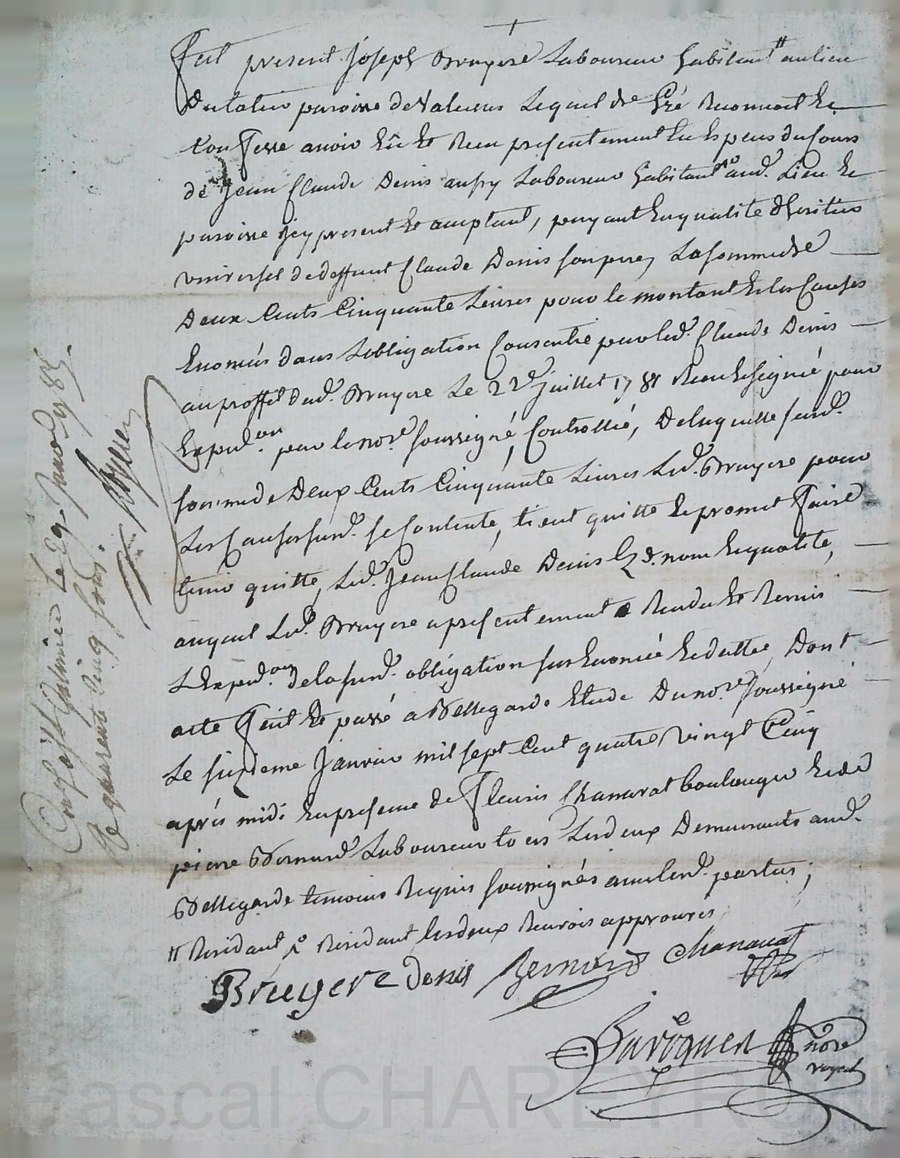 Fut present Joseph Bruyere Laboureur habitant # au lieu
paroisse de Lequel de Gré Reconnoit Et
Confesse avoir Eû Et Receu presentement En Especes du Cours
de Jean Claude Denis aussy Laboureur habitant aud. Lieu Et
paroisse icy present Et acceptant, payant En qualité d'heritier
universel de deffunt Claude Denis son pere, La Somme de
Deux Cents Cinquante Livres pour le montant Et les Causes
Enoncés dans L'obligation Consentie par led. Claude Denis
au proffit dud. Bruyere Le 22e Juillet 178
Expedon par le nore. soussigné, Controllée, De laquelle sud.
somme de Deux Cents Cinquante Livres Led. Bruyere pour
Les Causes sud. se Contente, tient quitte Et promet faire
tenir quitte, Led. Jean Claude Denis Ez d. nom Et qualité,
auquel Led. Bruyere a presentement Rendu Et Remis
L'Expedon de la sud. obligation sus Enoncée Et dattée, Dont
acte Fait Et passé a Bellegarde Etude Du nore. soussigné
Le sixieme Janvier mil sept Cent quatre vingt Cinq
après midi En presence de Fleuris Chanavat boulanger Et de
pierre Bernard Laboureur tous Les deux Demeurants aud.
Bellegarde temoins Requis soussignés avec les d. parties;
# Residant Residant les deux Renvois approuvés
Bruyere Denis Bernard Chanavat
nore
royal
Conllé à St Galmier le 9 Janv 1785
Rç quarante cinq sous
Pascal CHAREYRON